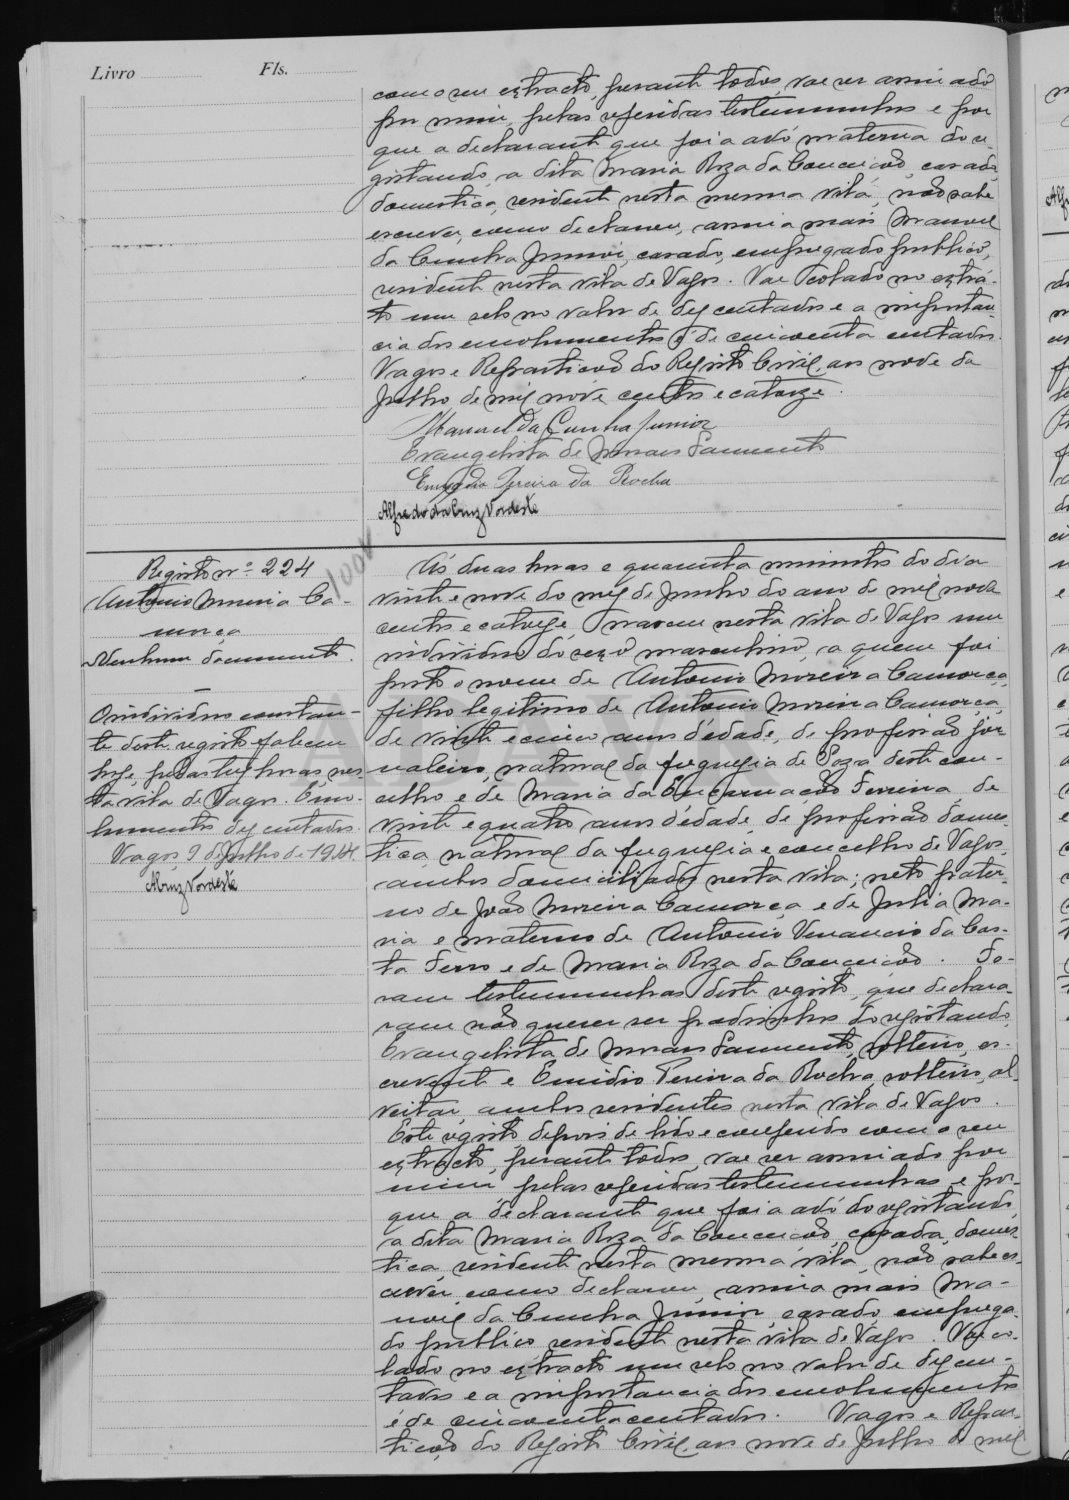 Livro Fls.
com o seu extracto, perante todos, vae ser assinado
por mim, pelas referidas testemunhas e por
que a declarante que foi a avó materna do re-
gistando, a dita Maria Roza da Conceição, casada,
domestica, residente nesta mesma vila, não sabe
escrever, como declarou, assina mais Manoel
da Cunha Junior, casado, empregado publico,
residente nesta vila de Vagos. Vae colado no extra-
to um selo no valor de dez centavos e a importan-
cia dos emolumentos é de cincoenta centavos.
Vagos e Repartição do Registo Civil, aos nove de
Julho de mil nove centos e catorze.
Manuel da Cunha Junior
Evangelista de Moraes Sarmento
Emygdio Pereira da Rocha
Alfredo da Cruz Nordeste
Registo nº 224
Antonio Moreira Ca-
morça
Nenhum documento.
O individuo constan-
te deste registo faleceu
hoje, pelas tres horas, nes-
ta vila de Vagos. Emo-
lumentos dez centavos.
Vagos, 9 de Julho de 1914.
ACruz Nordeste
100
Ás duas horas e quarenta minutos do dia
vinte e nove do mez de Junho do ano de mil nove
centos e catorze nasceu nesta vila de Vagos um
individuo do sexo masculino, a quem foi
posto o nome de Antonio Moreira Camorça,
filho legitimo de Antonio Moreira Camorça,
de vinte e cinco anos d'edade, de profissão jor-
naleiro, natural da freguesia de Soza deste con-
celho e de Maria da Encarnação Ferreira, de
vinte e quatro anos d'edade, de profissão domes-
tica, natural da freguesia e concelho de Vagos,
ambos domiciliados nesta vila; neto pater-
no de João Moreira Camorça e de Julia Ma-
ria e materno de Antonio Venancio da Cos-
ta Ferro e de Maria Roza da Conceição. Fo-
ram testemunhas deste registo, que declara-
ram não querer ser padrinhos do registando,
Evangelista de Moraes Sarmento, solteiro, es-
crevente e Emidio Pereira da Rocha, solteiro, al-
veitar, ambos residentes nesta vila de Vagos.
Este registo, depois de lido e conferido com o seu
extracto, perante todos, vae ser assinado por
mim, pelas referidas testemunhas e por-
que a declarante que foi a avó do registando,
a dita Maria Roza da Conceição, casada, domes-
tica, residente nesta mesma vila, não sabe es-
crever, como declarou, assina mais Ma-
noel da Cunha Junior, casado, emprega-
do publico residente nesta vila de Vagos. Vae co-
lado no extracto um selo no valor de dez cen-
tavos e a importancia dos emolumentos
é de cincoenta centavos. Vagos e Repar-
tição do Registo Civil, aos nove de Julho de mil